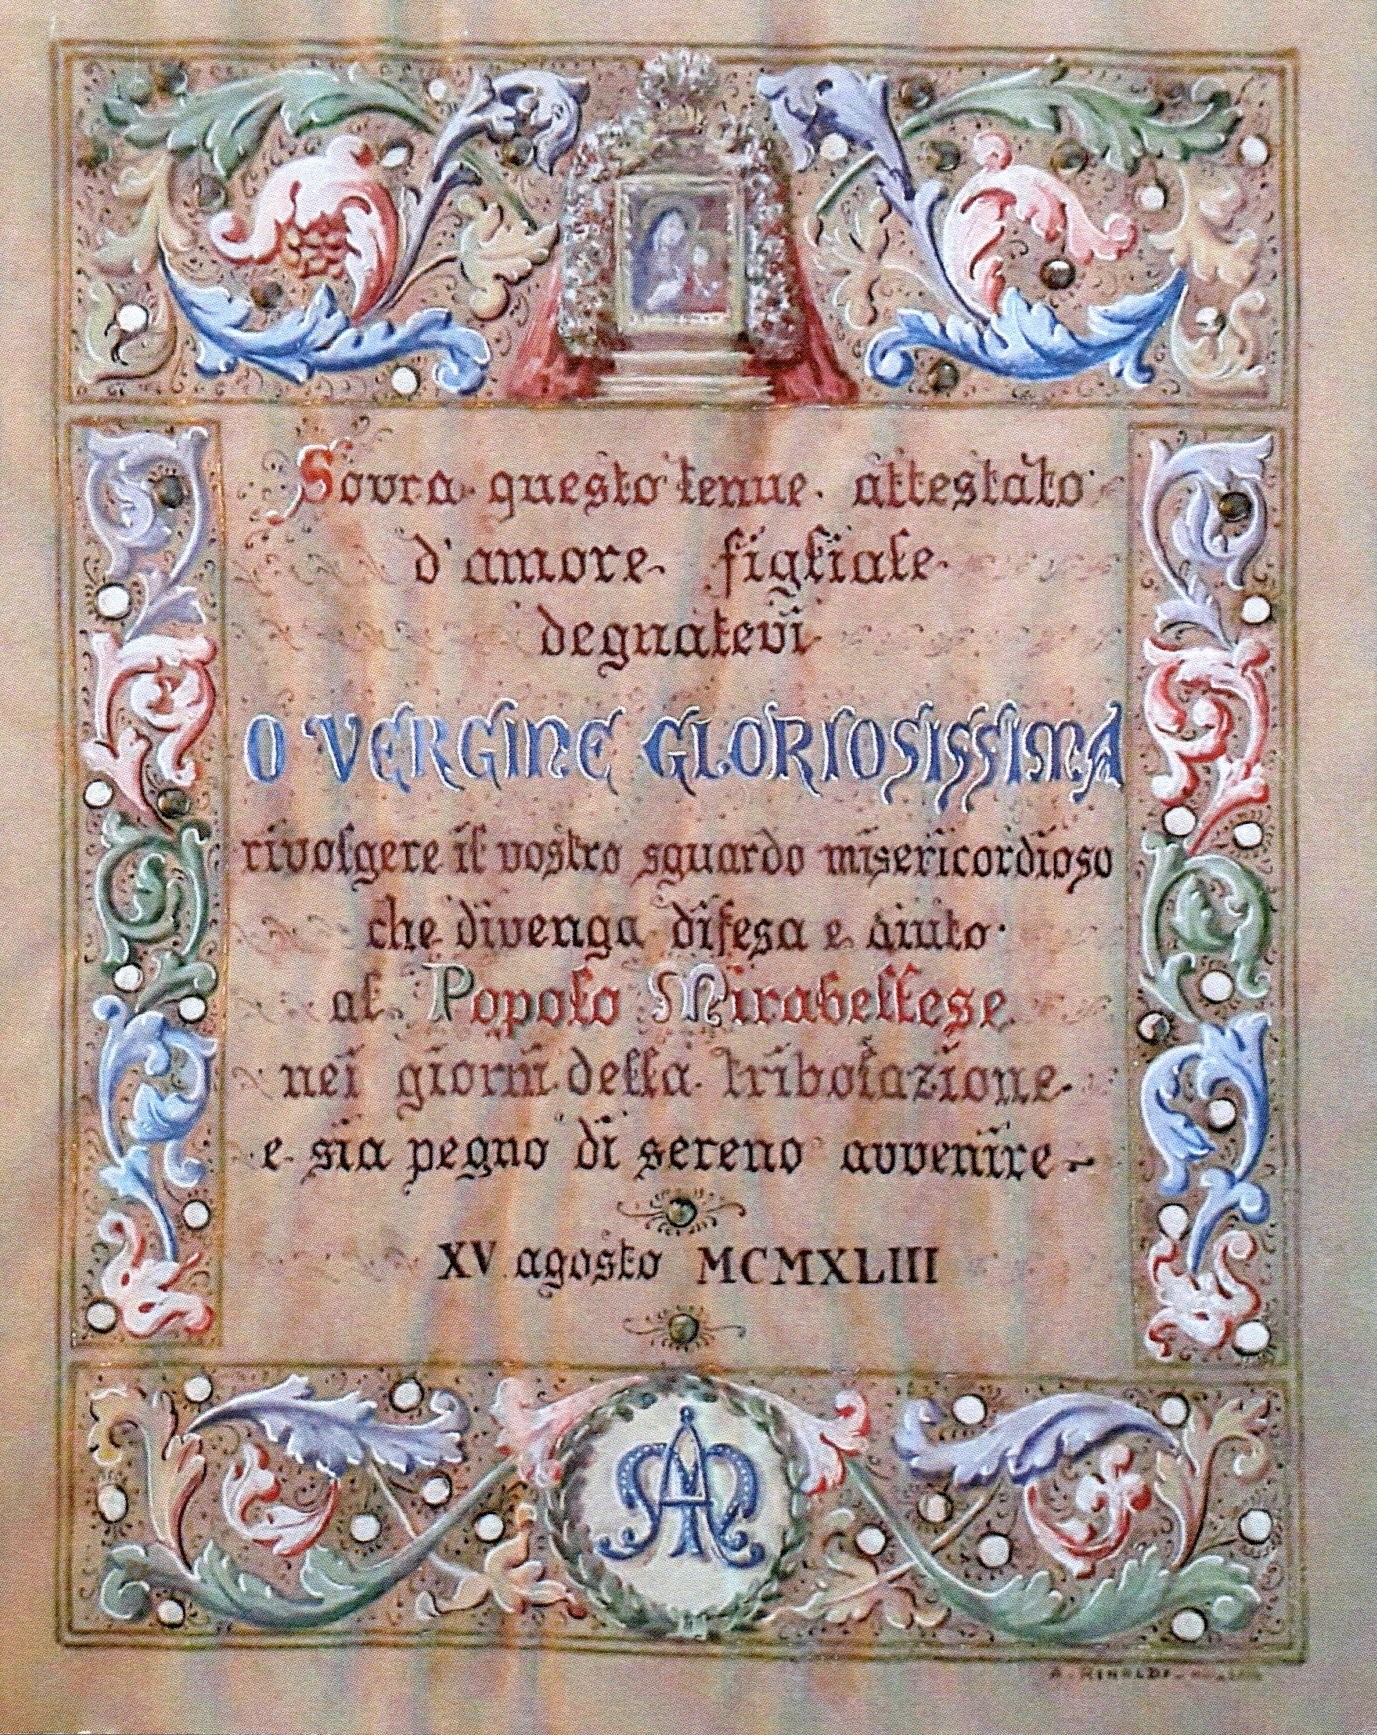 Sovra questo tenue attestato
d'amore figliale
degnatevi
O VERGINE GLORIOSISSIMA
rivolgere il vostro sguardo misericordioso
che divenga difesa e aiuto
al Popolo Mirabellese
nei giorni della tribolazione
e sia pegno di sereno avvenire
XV agosto MCMXLIII
A. RINALDI